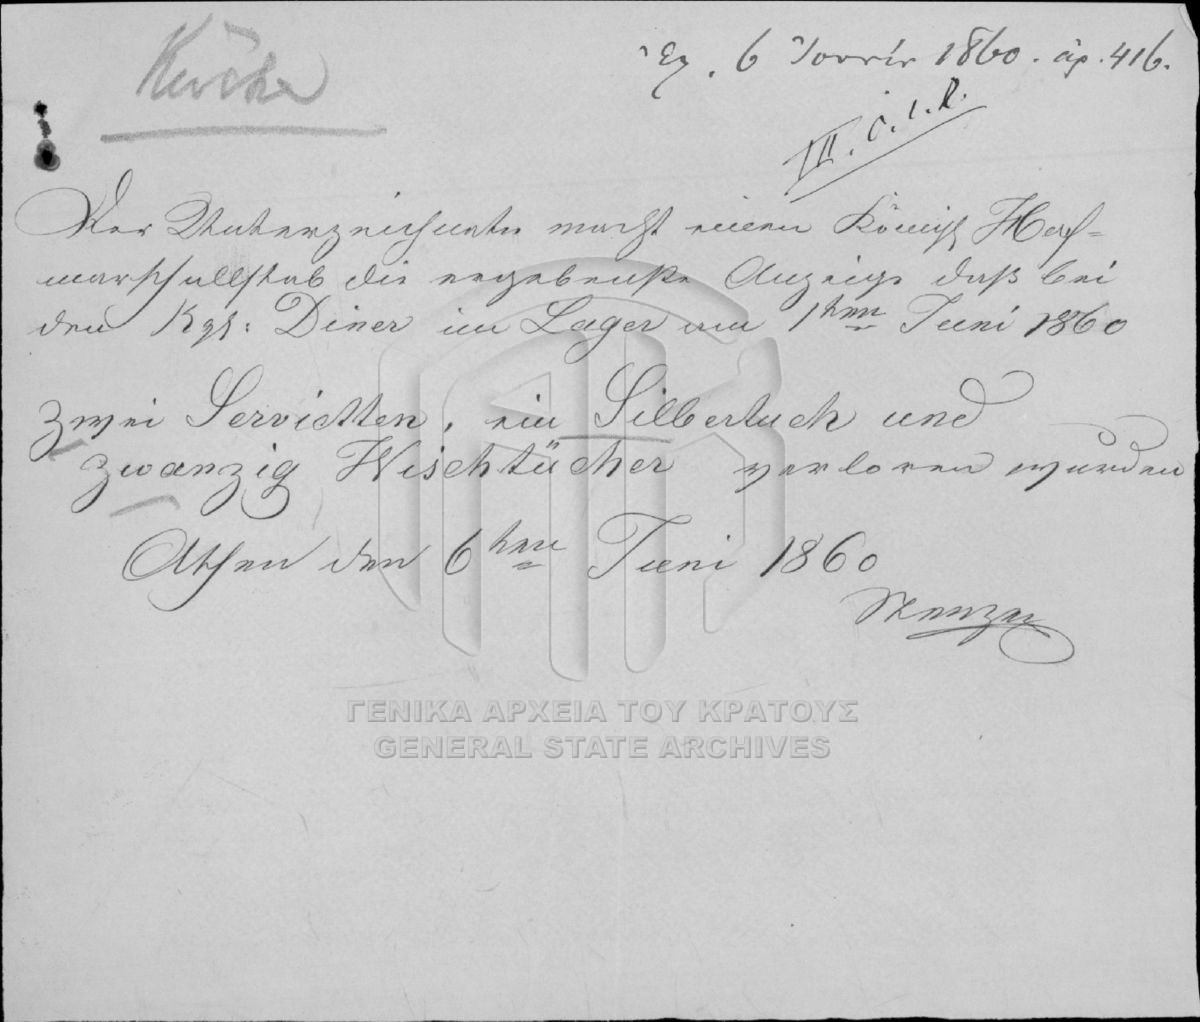 Ἐλ. 6 Ἰουνίου 1860. ἀρ. 416.
III. C. 1. R.
Der Unterzeichnete macht einem Königl Hof=
marschallstab die ergebenste Anzeige daß bei
den Kgl: Diner im Lager am 1ten Juni 1860
zwei Servietten, ein Silbertuch und
zwanzig Wischtücher verloren wurden
Athen den 6ten Juni 1860
ΓΕΝΙΚΑ ΑΡΧΕΙΑ ΤΟΥ ΚΡΑΤΟΥΣ
GENERAL STATE ARCHIVES